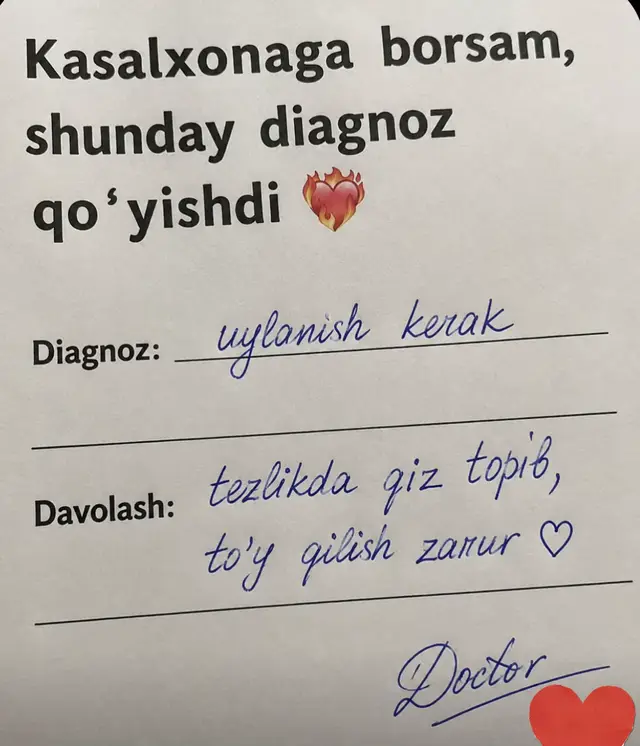 Kasalxonaga borsam,
shunday diagnoz
qoʻyishdi ❤️‍🔥
Diagnoz: uylanish kerak
Davolash: tezlikda qiz topib,
to'y qilish zarur ♡
Doctor